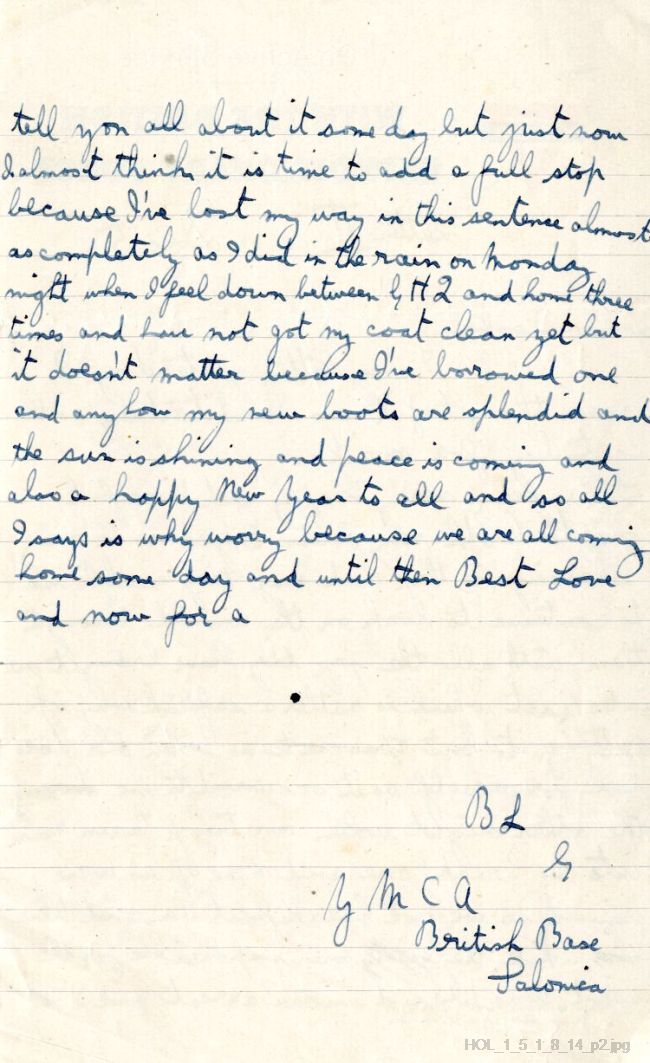 tell you all about it some day but just now
I almost think it is time to add a full stop
because I've lost my way in this sentence almost
as completely as I did in the rain on Monday
night when I feel down between G H 2 and home three
times and have not got my coat clean yet but
it doesn't matter because I've borrowed one
and anyhow my new boots are splendid and
the sun is shining and peace is coming and
also a happy New Year to all and so all
I says is why worry because we are all coming
home some day and until then Best Love
and now for a
.
B L
G
Y M C A
British Base
Salonica
HOL_1_5_1_8_14_p2.jpg